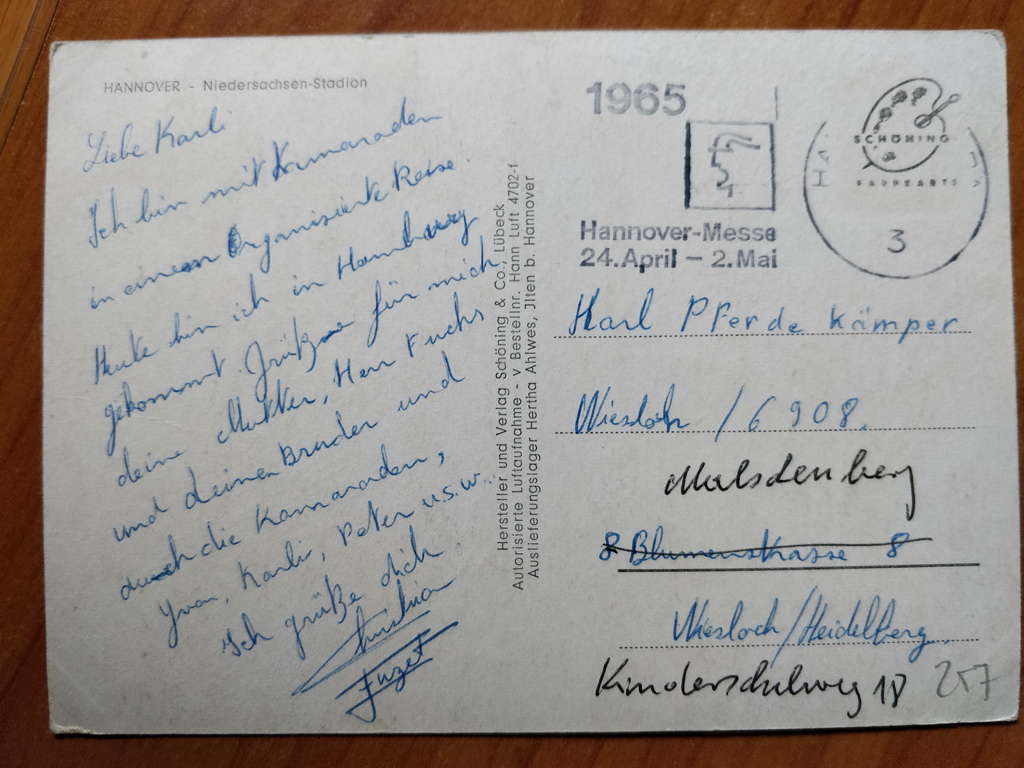 HANNOVER - Niedersachsen-Stadion
Liebe Karli
Ich bin mit Kamaraden
in einem Organisierte Reise.
Heute bin ich in Hamburg
gekommt. Grüße für mich
deine Mutter, Herr Fuchs
und deinen Bruder und
auch die Kamaraden,
Yvan, Karli, Peter u.s.w...
Ich grüße dich
Christian
Hersteller und Verlag Schöning & Co., Lübeck
Autorisierte Luftaufnahme - v Bestellnr. Hann Luft 4702-f
Auslieferungslager Hertha Ahlwes, Jlten b. Hannover
1965
Hannover-Messe
24. April – 2. Mai
SCHÖNING
3
Karl Pferde kämper
Wiesloch / 6908.
8 Blumenstrasse 8
Wiesloch/Heidelberg.
Kinderschulweg 18
257